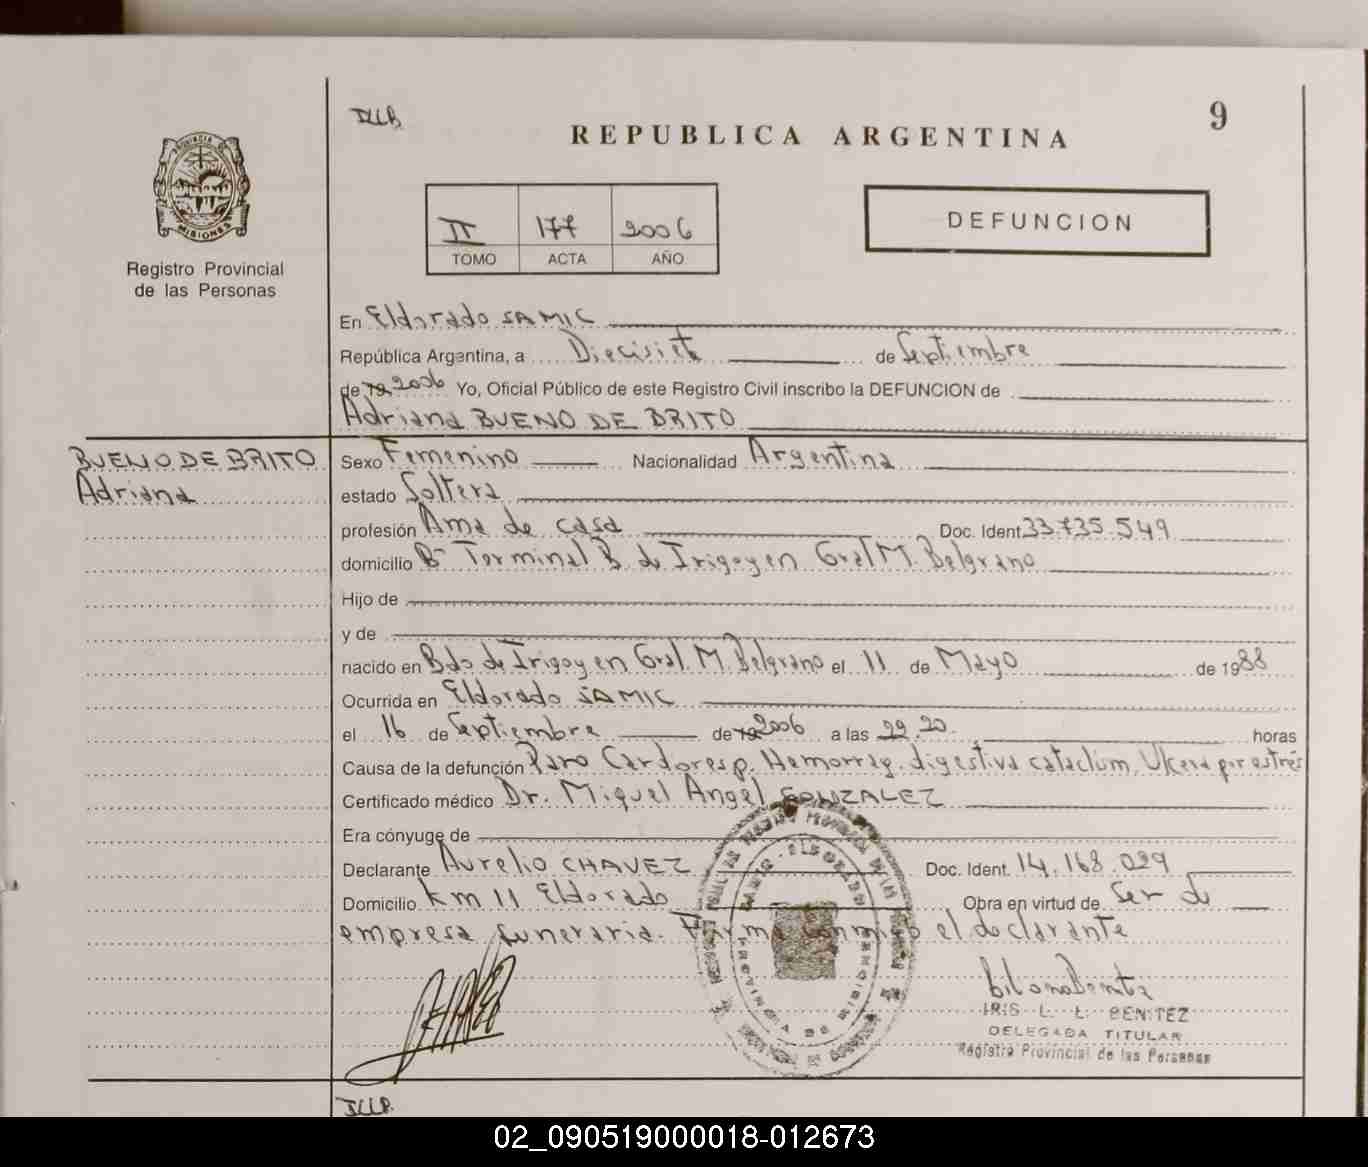 ILLB
9
REPUBLICA ARGENTINA
PROVINCIA DE
MISIONES
Registro Provincial
de las Personas
II 177 2006
TOMO ACTA AÑO
DEFUNCION
En Eldorado SAMIC
República Argentina, a Diecisiete de Septiembre
de 19 2006 Yo, Oficial Público de este Registro Civil inscribo la DEFUNCION de
Adriana BUENO DE BRITO
BUENO DE BRITO
Adriana
Sexo Femenino Nacionalidad Argentina
estado Soltera
profesión Ama de casa Doc. Ident. 33.735.549
domicilio B- Terminal B. de Irigoyen Gral M. Belgrano
Hijo de
y de
nacido en Bdo de Irigoyen Gral. M. Belgrano el 11 de Mayo de 1988
Ocurrida en Eldorado SAMIC
el 16 de Septiembre de 19 2006 a las 22.20. horas
Causa de la defunción Paro Cardoresp. Hemorrag. digestiva cataclúm. Ulcera por estrés
Certificado médico Dr. Miguel Angel GONZALEZ
Era cónyuge de
Declarante Aurelio CHAVEZ Doc. Ident. 14.168.029
Domicilio Km 11 Eldorado Obra en virtud de Ser de
empresa funeraria. Firma conmigo el declarante
IRIS L. L. BENITEZ
DELEGADA TITULAR
Registro Provincial de las Personas
ILLB.
02_090519000018-012673